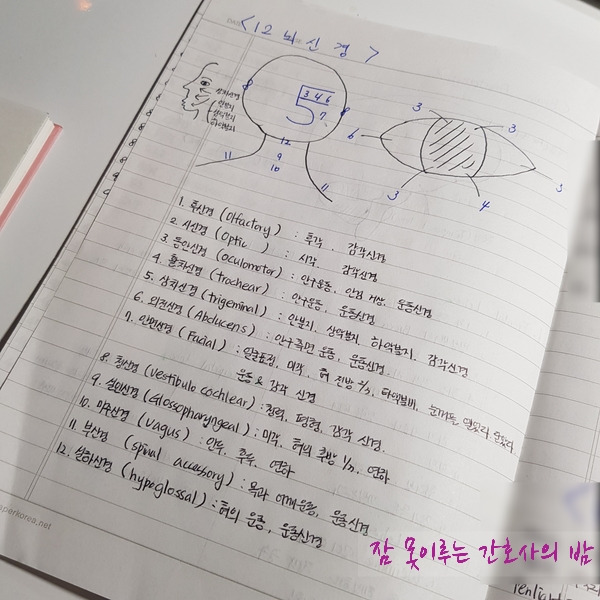 <12 뇌신경>
삼차신경
안분지
상악분지
하악분지
8
8
3 4 6
5
7
12
9
10
11
11
3
3
6
3
4
3
1. 후신경 (Olfactory) : 후각, 감각신경
2. 시신경 (Optic) : 시각, 감각신경
3. 동안신경 (oculomotor) : 안구운동, 안검 거상, 운동신경
4. 활차신경 (trochear) : 안구운동, 운동신경
5. 삼차신경 (trigeminal) : 안분지, 상악분지, 하악분지, 감각신경
6. 외전신경 (Abducens) : 안구측면 운동, 운동신경
7. 안면신경 (Facial) : 얼굴표정, 미각, 혀 전방 2/3, 타액분비, 눈꺼풀
운동 & 감각 신경
8. 청신경 (vestibulo cochlear) : 청력, 평형, 감각 신경
9. 설인신경 (Glossopharyngeal) : 미각, 혀의 후방 1/3, 연하
10. 미주신경 (vagus) : 인두, 후두, 연하
11. 부신경 (spinal accessory) : 목과 어깨운동, 운동신경
12. 설하신경 (hypoglossal) : 혀의 운동, 운동신경
aperkorea.net
잠 못이루는 간호사의 밤
penlight